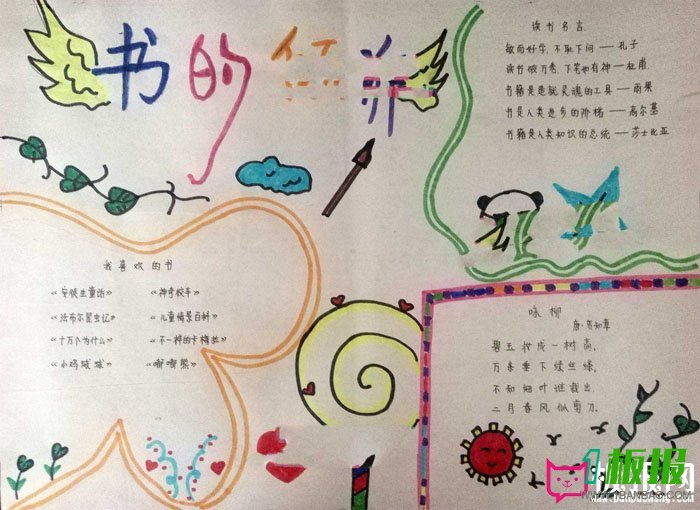 书的
读书名言
敏而好学，不耻下问——孔子
读书破万卷，下笔如有神——杜甫
书籍是造就灵魂的工具——雨果
书是人类进步的阶梯——高尔基
书籍是人类知识的总统——莎士比亚
我喜欢的书
《安徒生童话》 《神奇校车》
《法布尔昆虫记》 《儿童情景百科》
《十万个为什么》 《不一样的卡梅拉》
《小鸡球球》 《嘟嘟熊》
咏柳
唐·贺知章
碧玉妆成一树高，
万条垂下绿丝绦，
不知细叶谁裁出，
二月春风似剪刀。
1板报
WWW.1BANBAO.COM